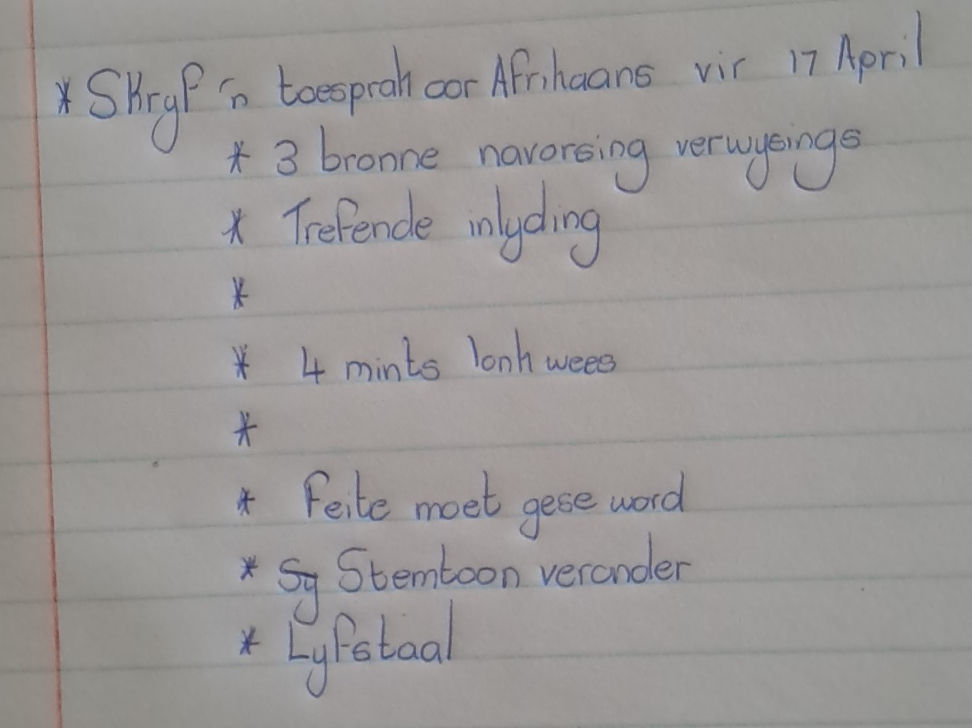 * Skryf 'n toesprak oor Afrikaans vir 17 April
* 3 bronne navorsing verwysings
* Trefende inlyding
*
* 4 mints lonk wees
*
* Feite moet gese word
* Sy Stemtoon verander
* Lyfstaal